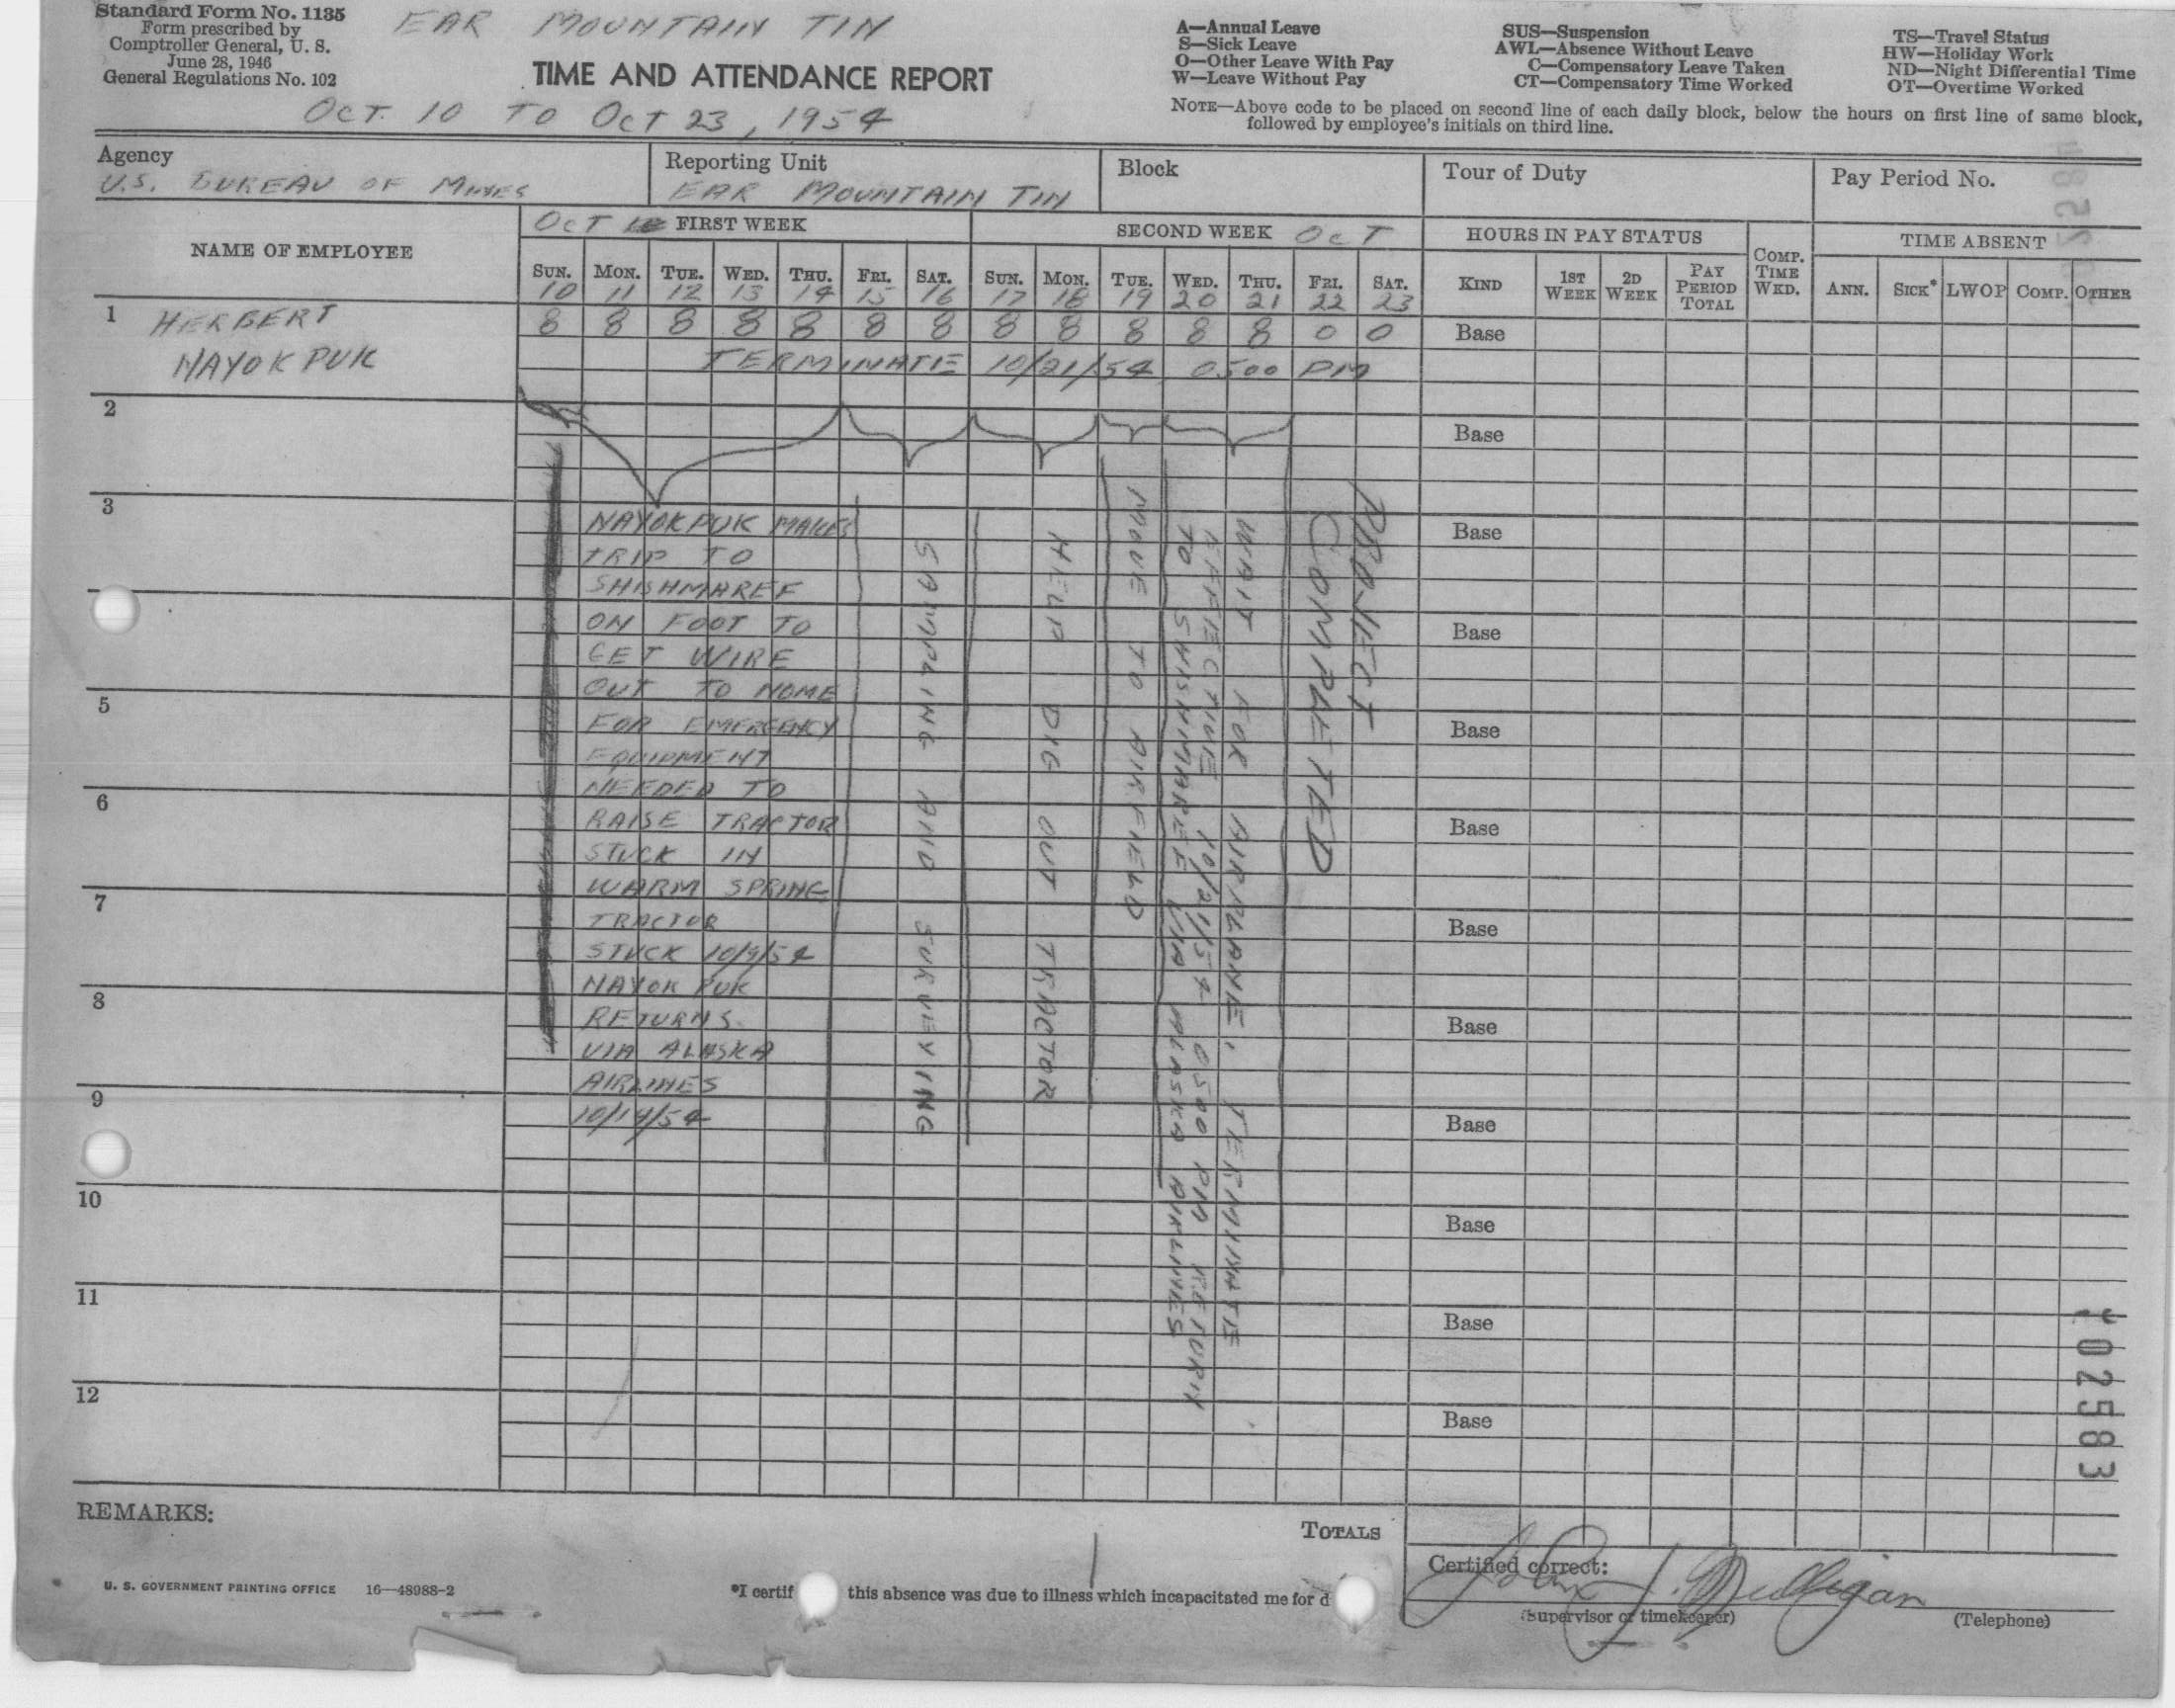 Standard Form No. 1135
Form prescribed by
Comptroller General, U. S.
June 28, 1946
General Regulations No. 102
EAR MOUNTAIN TIN
TIME AND ATTENDANCE REPORT
OCT. 10 TO OCT 23, 1954
A—Annual Leave
S—Sick Leave
O—Other Leave With Pay
W—Leave Without Pay
SUS—Suspension
AWL—Absence Without Leave
C—Compensatory Leave Taken
CT—Compensatory Time Worked
TS—Travel Status
HW—Holiday Work
ND—Night Differential Time
OT—Overtime Worked
NOTE—Above code to be placed on second line of each daily block, below the hours on first line of same block,
followed by employee's initials on third line.
Agency
U.S. BUREAU OF MINES
Reporting Unit
EAR MOUNTAIN TIN
Block
Tour of Duty
Pay Period No.
NAME OF EMPLOYEE
OCT FIRST WEEK
SECOND WEEK OCT
HOURS IN PAY STATUS
COMP. TIME WKD.
TIME ABSENT
SUN. MON. TUE. WED. THU. FRI. SAT. SUN. MON. TUE. WED. THU. FRI. SAT.
10 11 12 13 14 15 16 17 18 19 20 21 22 23
KIND 1ST WEEK 2D WEEK PAY PERIOD TOTAL
ANN. SICK* LWOP COMP. OTHER
1 HERBERT 8 8 8 8 8 8 8 8 8 8 8 8 0 0 Base
NAYOKPUK TERMINATE 10/21/54 0500 PM
2 Base
3 Base
Base
5 Base
6 Base
7 Base
8 Base
9 Base
10 Base
11 Base
12 Base
NAYOKPUK MAKES
TRIP TO
SHISHMAREF
ON FOOT TO
GET WIRE
OUT TO NOME
FOR EMERGENCY
EQUIPMENT
NEEDED TO
RAISE TRACTOR
STUCK IN
WARM SPRING
TRACTOR
STUCK 10/9/54
NAYOKPUK
RETURNS
VIA ALASKA
AIRLINES
10/14/54
SAMPLING AND SURVEYING
HELP DIG OUT TRACTOR
MOVE TO AIRFIELD
WAIT FOR AIRPLANE, TERMINATE
EFFECTIVE 10/21/54 0500 PM RETURN
TO SHISHMAREF VIA ALASKA AIRLINES
PROJECT
COMPLETED
02583
REMARKS:
TOTALS
Certified correct:
John J. Mulligan
(Supervisor or timekeeper)
(Telephone)
U. S. GOVERNMENT PRINTING OFFICE 16—48988-2
*I certif this absence was due to illness which incapacitated me for d